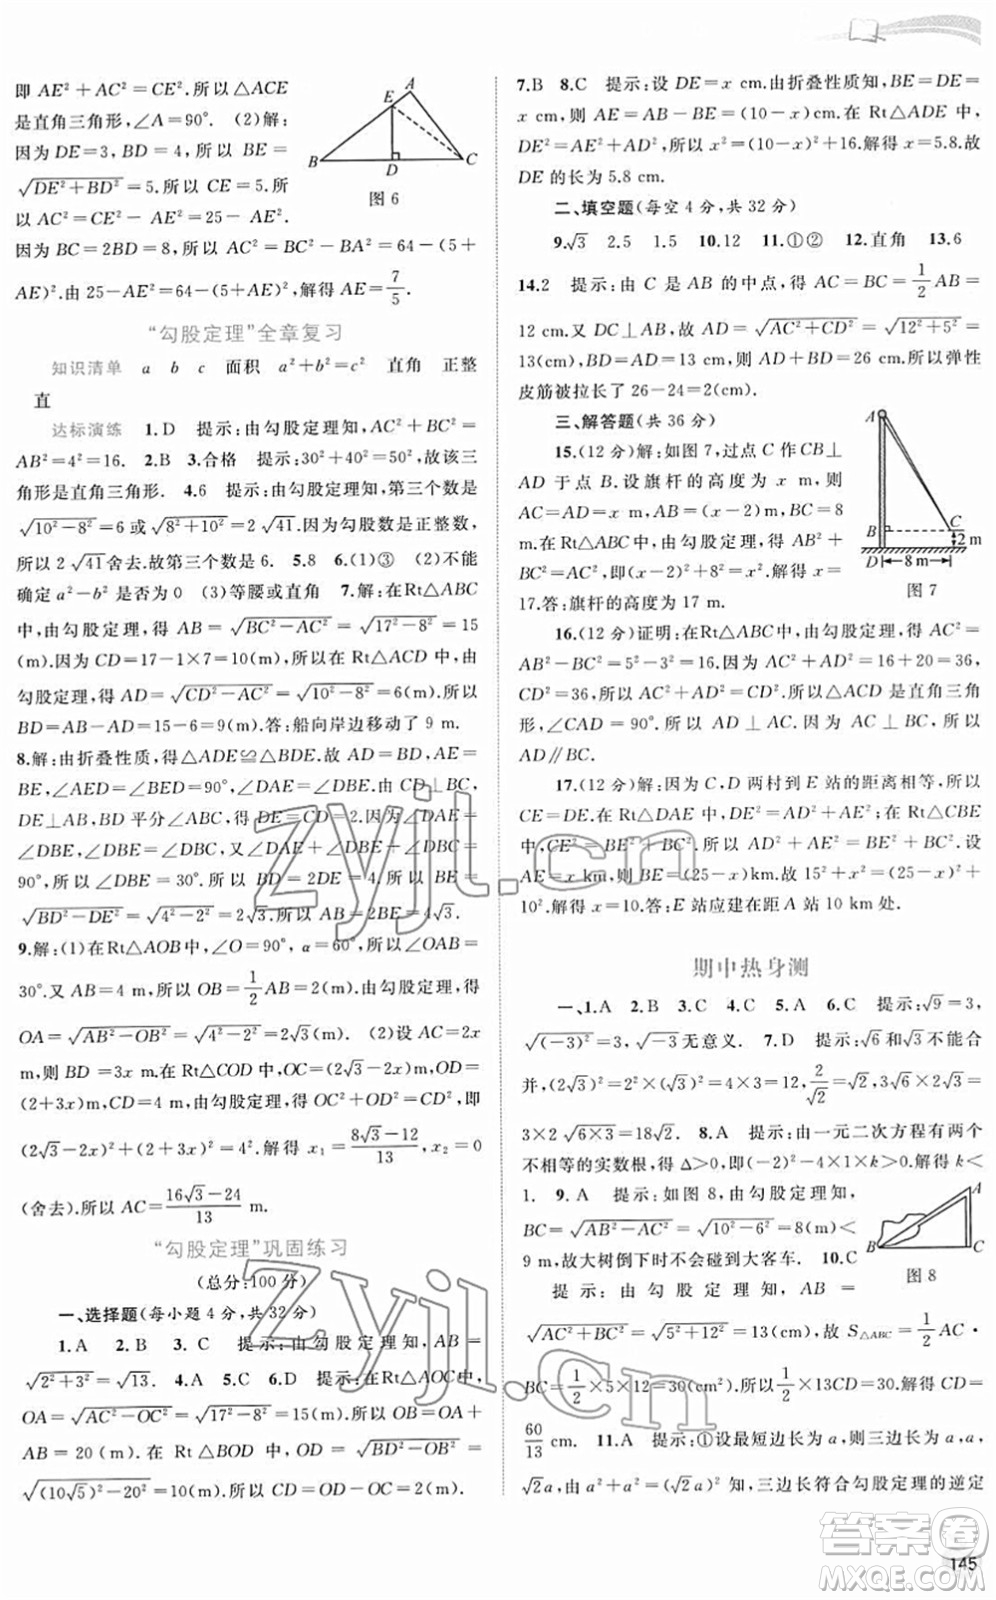 即 AE²+AC²=CE². 所以 △ACE
是直角三角形, ∠A=90°. (2)解:
因为 DE=3, BD=4, 所以 BE=
√(DE²+BD²)=5. 所以 CE=5. 所
以 AC²=CE²-AE²=25-AE².
A
E
B
D
C
图 6
因为 BC=2BD=8, 所以 AC²=BC²-BA²=64-(5+
AE)². 由 25-AE²=64-(5+AE)², 解得 AE=7/5.
“勾股定理”全章复习
知识清单 a b c 面积 a²+b²=c² 直角 正整
直
达标演练 1.D 提示:由勾股定理知, AC²+BC²=
AB²=4²=16. 2.B 3.合格 提示:30²+40²=50², 故该三
角形是直角三角形. 4.6 提示:由勾股定理知, 第三个数是
√(10²-8²)=6 或 √(8²+10²)=2√41. 因为勾股数是正整数,
所以 2√41 舍去. 故第三个数是 6. 5.8 6.(1)③ (2)不能
确定 a²-b² 是否为 0 (3)等腰或直角 7.解:在Rt△ABC
中, 由勾股定理, 得 AB=√(BC²-AC²)=√(17²-8²)=15
(m). 因为 CD=17-1×7=10(m), 所以在 Rt△ACD 中, 由
勾股定理, 得 AD=√(CD²-AC²)=√(10²-8²)=6(m). 所以
BD=AB-AD=15-6=9(m). 答:船向岸边移动了 9 m.
8.解:由折叠性质, 得△ADE≌△BDE. 故 AD=BD, AE=
BE, ∠AED=∠BED=90°, ∠DAE=∠DBE. 由 CD⊥BC,
DE⊥AB, BD 平分∠ABC, 得 DE=CD=2. 由∠DAE=
∠DBE, ∠DBE=∠DBC, 又∠DAE+∠DBE+∠DBC=
90°, 所以∠DBE=30°. 所以 BD=2DE=4. 所以 BE=
√(BD²-DE²)=√(4²-2²)=2√3.
9.解:(1)在Rt△AOB中, ∠O=90°, α=60°, 所以∠OAB=
30°. 又 AB=4 m, 所以 OB=1/2 AB=2(m). 由勾股定理, 得
OA=√(AB²-OB²)=√(4²-2²)=2√3(m). (2)设 AC=2x
m, 则 BD=3x m. 在Rt△COD 中, OC=(2√3-2x)m, OD=
(2+3x)m, CD=4 m, 由勾股定理, 得 OC²+OD²=CD², 即
(2√3-2x)²+(2+3x)²=4². 解得 x₁=(8√3-12)/13, x₂=0
(舍去). 所以 AC=(16√3-24)/13 m.
“勾股定理”巩固练习
(总分:100 分)
一、选择题(每小题 4 分, 共 32 分)
1.A 2.B 3.C 提示:由勾股定理知, AB=
√(2²+3²)=√13. 4.A 5.C 6.D 提示:在 Rt△AOC 中,
OA=√(AC²-OC²)=√(17²-8²)=15(m). 所以 OB=OA+
AB=20(m). 在 Rt△BOD 中, OD=√(BD²-OB²)=
√((10√5)²-20²)=10(m). 所以 CD=OD-OC=2(m).
7.B 8.C 提示:设 DE=x cm. 由折叠性质知, BE=DE=
x cm, 则 AE=AB-BE=(10-x)cm. 在 Rt△ADE 中,
DE²=AE²+AD², 所以 x²=(10-x)²+16. 解得 x=5.8. 故
DE 的长为 5.8 cm.
二、填空题(每空 4 分, 共 32 分)
9.√3 2.5 1.5 10.12 11.①② 12.直角 13.6
14.2 提示:由 C 是 AB 的中点, 得 AC=BC=1/2 AB=
12 cm. 又 DC⊥AB, 故 AD=√(AC²+CD²)=√(12²+5²)=
13(cm). 所以 BD=AD=13 cm, AD+BD=26 cm. 所以弹性
皮筋被拉长了 26-24=2(cm).
三、解答题(共 36 分)
15.(12 分)解:如图 7, 过点 C 作 CB⊥
AD 于点 B. 设旗杆的高度为 x m, 则
AC=AD=x m, AB=(x-2)m, BC=8
m. 在Rt△ABC 中, 由勾股定理, 得 AB²+
BC²=AC², 即 (x-2)²+8²=x². 解得 x=
17. 答:旗杆的高度为 17 m.
A
B
C
2 m
D
8 m
图 7
16.(12 分)证明:在Rt△ABC中, 由勾股定理, 得AC²=
AB²-BC²=5²-3²=16. 因为 AC²+AD²=16+20=36,
CD²=36, 所以 AC²+AD²=CD². 所以△ACD 是直角三角
形, ∠CAD=90°. 所以 AD⊥AC. 因为 AC⊥BC, 所以
AD∥BC.
17.(12 分)解:因为 C,D 两村到 E 站的距离相等, 所以
CE=DE. 在Rt△DAE 中, DE²=DA²+AE²; 在Rt△CBE
中, CE²=BE²+BC². 所以 DA²+AE²=BE²+BC². 设
AE=x km, 则 BE=(25-x)km. 故 15²+x²=(25-x)²+
10². 解得 x=10. 答:E 站应建在距 A 站 10 km 处.
期中热身测
一、1.A 2.B 3.C 4.C 5.A 6.C 提示:√9=3,
√((-3)²)=3, √(-3) 无意义. 7.D 提示:√6与√3不能合
并, (2√3)²=2²×(√3)²=4×3=12, 2/√2=√2, 3√6×2√3=
3×2√(6×3)=18√2. 8.A 提示:由一元二次方程有两个
不相等的实数根, 得 Δ>0, 即(-2)²-4×1×k>0. 解得 k<
1. 9.A 提示:如图 8, 由勾股定理知,
BC=√(AB²-AC²)=√(10²-6²)=8(m)<
9 m, 故大树倒下时不会碰到大客车. 10.C
A
B
C
图 8
提示:由勾股定理知, AB=
√(AC²+BC²)=√(5²+12²)=13(cm), 故 S△ABC=1/2 AC·
BC=1/2×5×12=30(cm²). 所以 1/2×13CD=30. 解得 CD=
60/13 cm. 11.A 提示:①设最短边长为 a, 则三边长为 a,a,
√2a, 由 a²+a²=(√2a)² 知, 三边长符合勾股定理的逆定
145
zyjl.cn
zyjl.cn
答案圈
MXQE.COM